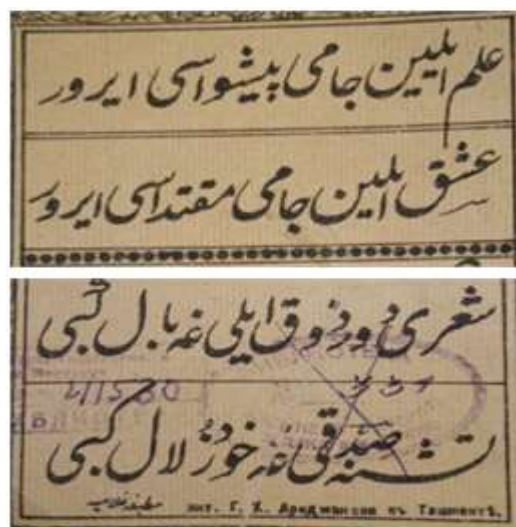 علم ایلیین جامی پیشواسی ایرور
عشق ایلین جامی مقتداسی ایرور
شعری دور ذوق ایلی غه بال کبی
تشنه صدقی غه خود زلال کبی
лит. Г. Х. Арифджанова въ Ташкентѣ.